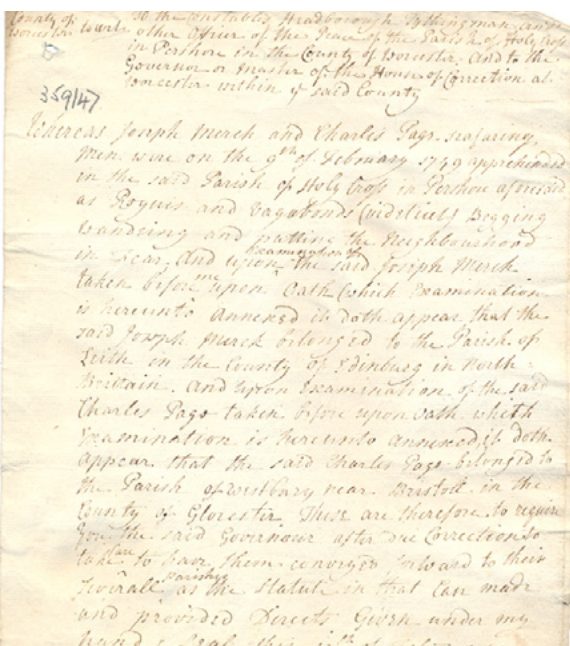 County of
Worcester to wit
To the Constables, Headborough Tythingman and
other Officer of the Peace of the Parish of Holy Cross
in Pershore in the County of Worcester. And to the
Governor or Master of the House of Correction at
Worcester within ye said County
359/47
Whereas Joseph Merch and Charles Page seafaring
Men were on the 9th of February 1759 apprehended
in the said Parish of Holy Cross in Pershore aforesaid
as Rogues and Vagabonds (videlicet) Begging
Wandring and putting the Neighbourhood
in Fear. And upon the Examination of the said Joseph Merch
taken before me upon Oath (which Examination
is hereunto annexed it doth appear that the
said Joseph Merch belonged to the Parish of
Leith in the County of Edinburg in North
Brittain. And upon Examination of the said
Charles Page taken before upon Oath which
Examination is hereunto annexed, it doth
appear that the said Charles Page belonged to
the Parish of Westbury near Bristoll in the
County of Glocester These are therefore to require
you the said Governour after due Correction to
take care to have them conveyed forward to their
severall Parishes as the Statute in that Case made
and provided Directs Given under my
hand & Seal this